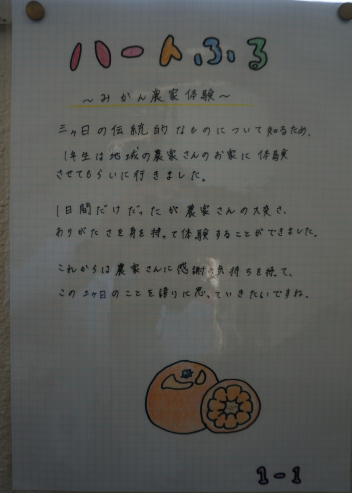 ハートふる
～みかん農家体験～
三ヶ日の伝統的なものについて知るため、
1年生は地域の農家さんのお家に体験
させてもらいに行きました。
1日間だけだったが農家さんの大変さ、
ありがたさを身を持って体験することができました。
これからは農家さんに感謝の気持ちを持って、
この三ヶ日のことを誇りに思っていきたいですね。
1-1